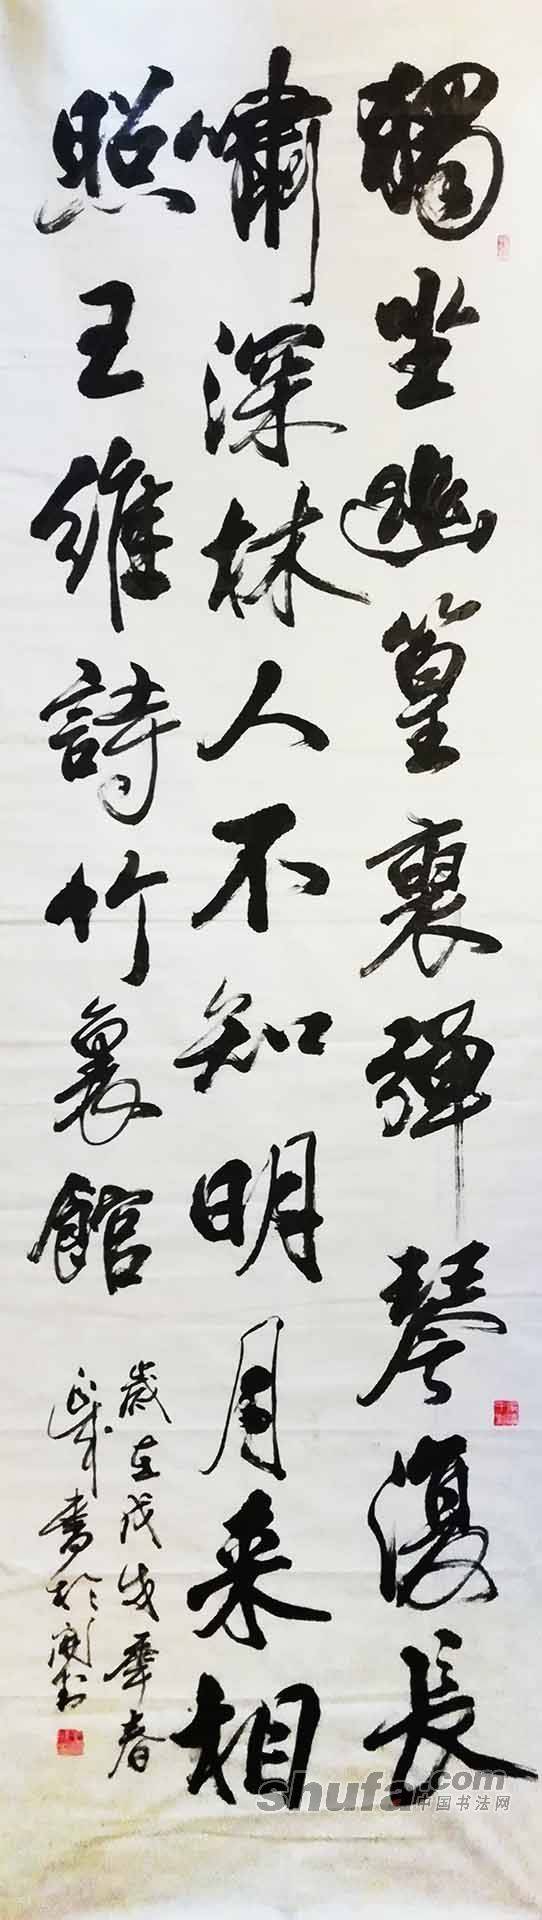 獨坐幽篁裏彈琴復長
嘯深林人不知明月來相
照王維詩竹裏館
歲在戊戌季春
書於
shufa.com
中国书法网